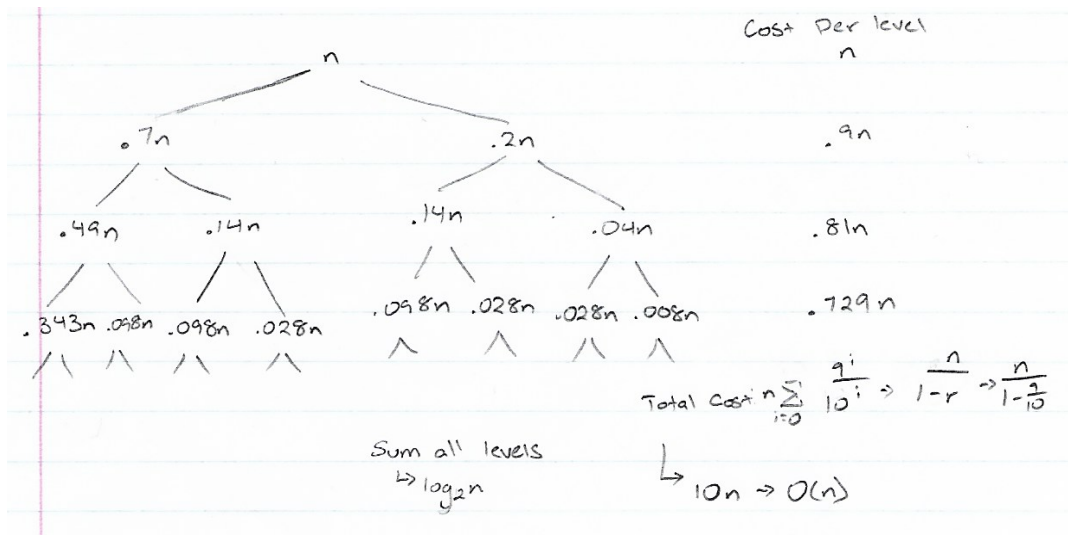 Cost Per level
n n
.7n .2n .9n
.49n .14n .14n .04n .81n
.343n .098n .098n .028n .098n .028n .028n .008n .729n
Total Cost n∑ i=0 9^i/10^i → n/1-r → n/1-9/10
Sum all levels
↳ log₂n
↳ 10n → O(n)